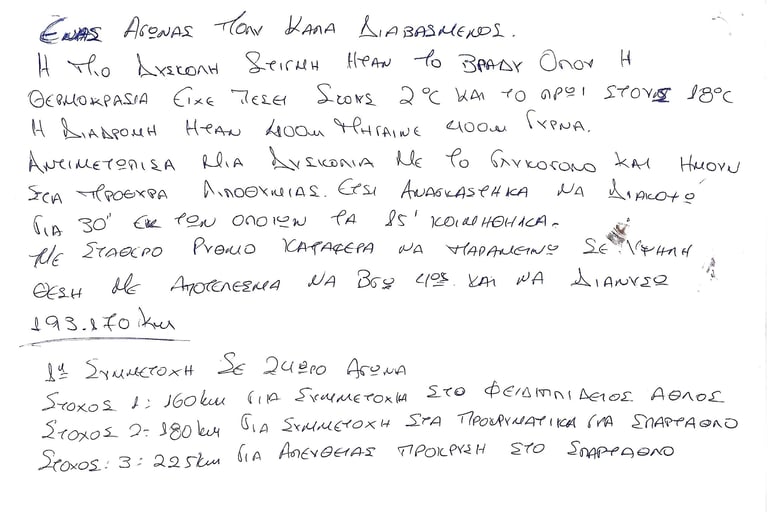 ΕΝΑΣ ΑΓΩΝΑΣ ΠΟΛΥ ΚΑΛΑ ΔΙΑΒΑΣΜΕΝΟΣ.
Η ΠΙΟ ΔΥΣΚΟΛΗ ΣΤΙΓΜΗ ΗΤΑΝ ΤΟ ΒΡΑΔΥ ΟΠΟΥ Η
ΘΕΡΜΟΚΡΑΣΙΑ ΕΙΧΕ ΠΕΣΕΙ ΣΤΟΥΣ 2°C ΚΑΙ ΤΟ ΠΡΩΙ ΣΤΟΥΣ 18°C
Η ΔΙΑΔΡΟΜΗ ΗΤΑΝ 400m ΠΗΓΑΙΝΕ 400m ΓΥΡΝΑ.
ΑΝΤΙΜΕΤΩΠΙΣΑ ΜΙΑ ΔΥΣΚΟΛΙΑ ΜΕ ΤΟ ΓΛΥΚΟΓΟΝΟ ΚΑΙ ΗΜΟΥΝ
ΣΤΑ ΠΡΟΘΥΡΑ ΛΙΠΟΘΥΜΙΑΣ. ΕΤΣΙ ΑΝΑΣΚΑΣΤΗΚΑ ΝΑ ΔΙΑΚΟΨΩ
ΓΙΑ 30' ΕΚ ΤΩΝ ΟΠΟΙΩΝ ΤΑ 15' ΚΟΙΜΗΘΗΚΑ.
ΜΕ ΣΤΑΘΕΡΟ ΡΥΘΜΟ ΚΑΤΑΦΕΡΑ ΝΑ ΠΑΡΑΜΕΙΝΩ ΣΕ ΥΨΗΛΗ
ΘΕΣΗ ΜΕ ΑΠΟΤΕΛΕΣΜΑ ΝΑ ΒΓΩ 4ΟΣ ΚΑΙ ΝΑ ΔΙΑΝΥΣΩ
193.170 km
1η ΣΥΜΜΕΤΟΧΗ ΣΕ 24ΩΡΟ ΑΓΩΝΑ
ΣΤΟΧΟΣ 1: 160km ΓΙΑ ΣΥΜΜΕΤΟΧΗ ΣΤΟ ΦΕΙΔΙΠΠΙΔΕΙΟΣ ΑΘΛΟΣ
ΣΤΟΧΟΣ 2: 180km ΓΙΑ ΣΥΜΜΕΤΟΧΗ ΣΤΑ ΠΡΟΚΡΥΜΑΤΙΚΑ ΓΙΑ ΣΠΑΡΤΑΘΛΟ
ΣΤΟΧΟΣ: 3: 225km ΓΙΑ ΑΠΕΥΘΕΙΑΣ ΠΡΟΚΡΥΣΗ ΣΤΟ ΣΠΑΡΤΑΘΛΟ